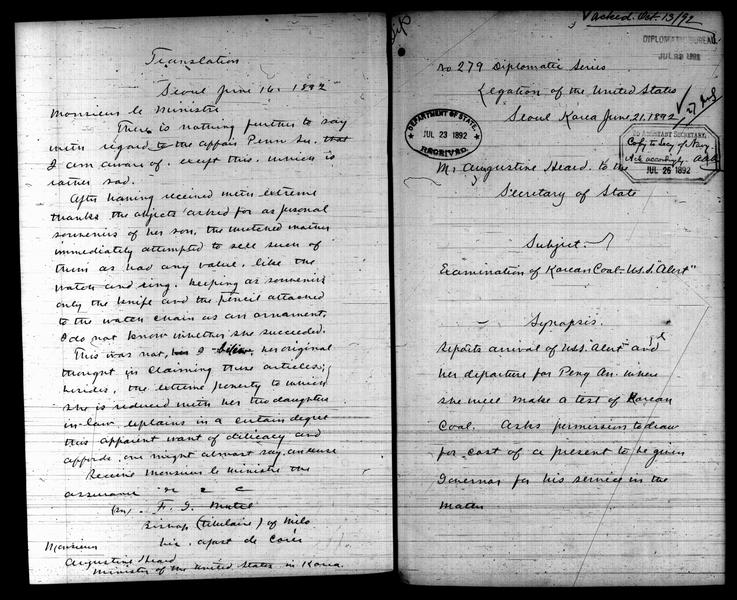 Translation
Seoul June 16. 1892
Monsieur le Ministre.
There is nothing further to say
with regard to the affair Penn Su. that
I am aware of. except this. which is
rather sad.
After having received with extreme
thanks the objects asked for as personal
souvenirs of her son, the wretched mother
immediately attempted to sell such of
them as had any value, like the
watch and ring. keeping as souvenirs
only the knife and the pencil attached
to the watch chain as an ornament.
I do not know whether she succeeded.
This was not, I her original
thought in claiming these articles;
besides, the extreme poverty to which
she is reduced with her two daughters
in-law, explains in a certain degree
this apparent want of delicacy and
affords, one might almost say, an excuse
Receive Monsieur le Ministre the
assurance &c
F. G. Mutel
Bishop (titulaire) of Milo
vic. apost de Corée
Monsieur
Augustine Heard
Minister of the United States in Korea.
Acked. Oct. 13/92
DIPLOMATIC BUREAU.
No 279 Diplomatic Series
Legation of the United States
Seoul Korea June 21. 1892
DEPARTMENT OF STATE,
JUL 23 1892
RECEIVED.
ASSISTANT SECRETARY,
Copy to Secy of Navy.
Ack accordingly. AAA
JUL 26 1892
Mr Augustine Heard. to the
Secretary of State
Subject.
Examination of Korean Coal - U.S.S. "Alert"
Synopsis.
Reports arrival of U.S.S. "Alert" and
her departure for Peng An. where
she will make a test of Korean
Coal. Asks permission to draw
for cost of a present to be given
Governor for his service in the
matter